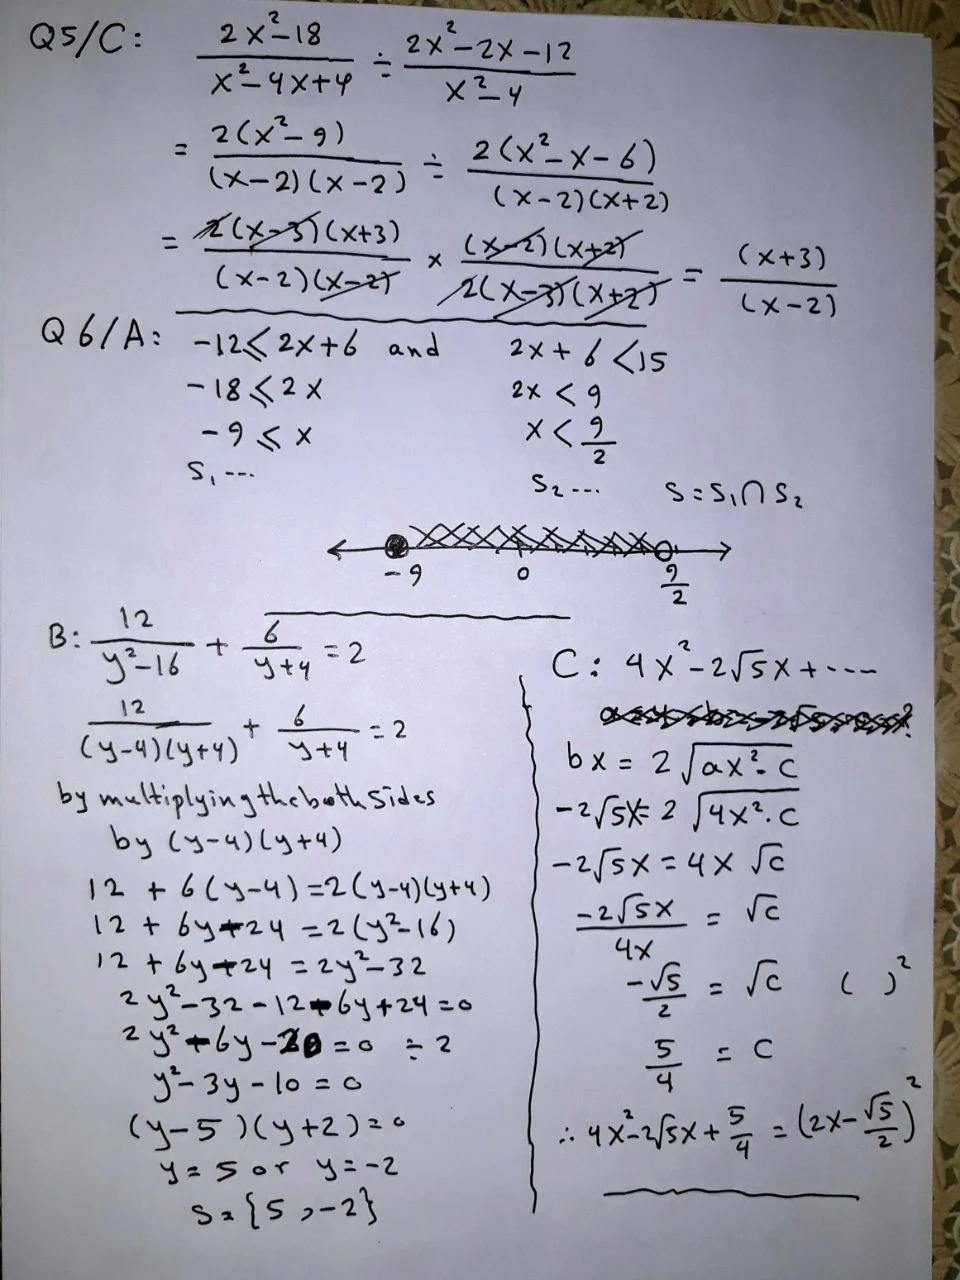 Q5/C: (2x²-18)/(x²-4x+4) ÷ (2x²-2x-12)/(x²-4)
= 2(x²-9)/((x-2)(x-2)) ÷ 2(x²-x-6)/((x-2)(x+2))
= 2(x-3)(x+3)/((x-2)(x-2)) × (x-2)(x+2)/(2(x-3)(x+2)) = (x+3)/(x-2)
Q6/A: -12≤2x+6 and 2x+6<15
-18≤2x 2x<9
-9≤x x<9/2
S₁ --- S₂ --- S=S₁∩S₂
-9 0 9/2
B: 12/(y²-16) + 6/(y+4) = 2
12/((y-4)(y+4)) + 6/(y+4) = 2
by multiplying the both sides
by (y-4)(y+4)
12 + 6(y-4) = 2(y-4)(y+4)
12 + 6y-24 = 2(y²-16)
12 + 6y-24 = 2y²-32
2y²-32-12-6y+24=0
2y²-6y-20=0 ÷2
y²-3y-10=0
(y-5)(y+2)=0
y=5 or y=-2
S={5,-2}
C: 4x²-2√5x+----
bx = 2√(ax²·c)
-2√5x = 2√(4x²·c)
-2√5x = 4x√c
-2√5x/4x = √c
-√5/2 = √c ( )²
5/4 = c
∴ 4x²-2√5x+5/4 = (2x-√5/2)²